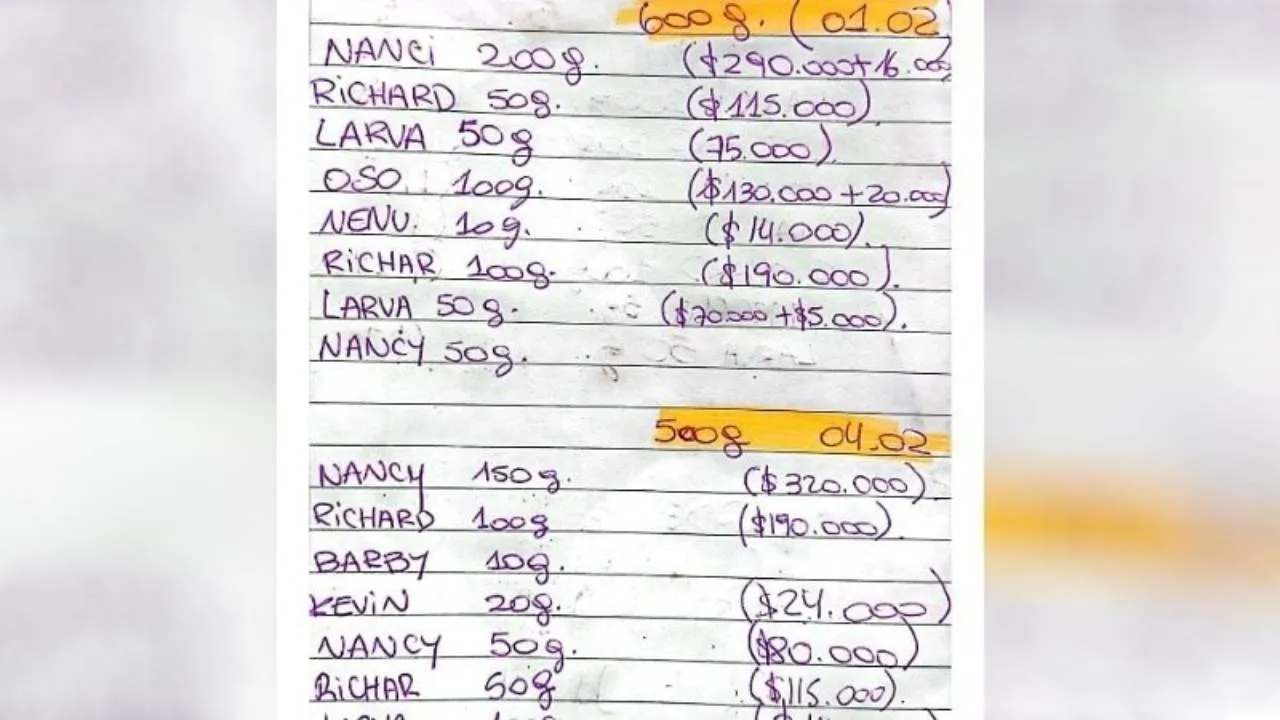 600g. (01.02
NANCi 200g. ($290.000+16.000
RiCHARD 50g. ($115.000)
LARVA 50g (75.000).
OSO 100g. ($130.000 +20.000)
NENU. 10g. ($14.000).
RiCHAR 100g. ($190.000).
LARVA 50g. ($70.000+$5.000).
NANCY 50g.
500g 04.02
NANCY 150g. ($320.000)
RiCHARD 100g ($190.000)
BARBY 10g.
KEViN 20g. ($24.000)
NANCY 50g. ($80.000)
RiCHAR 50g ($115.000).